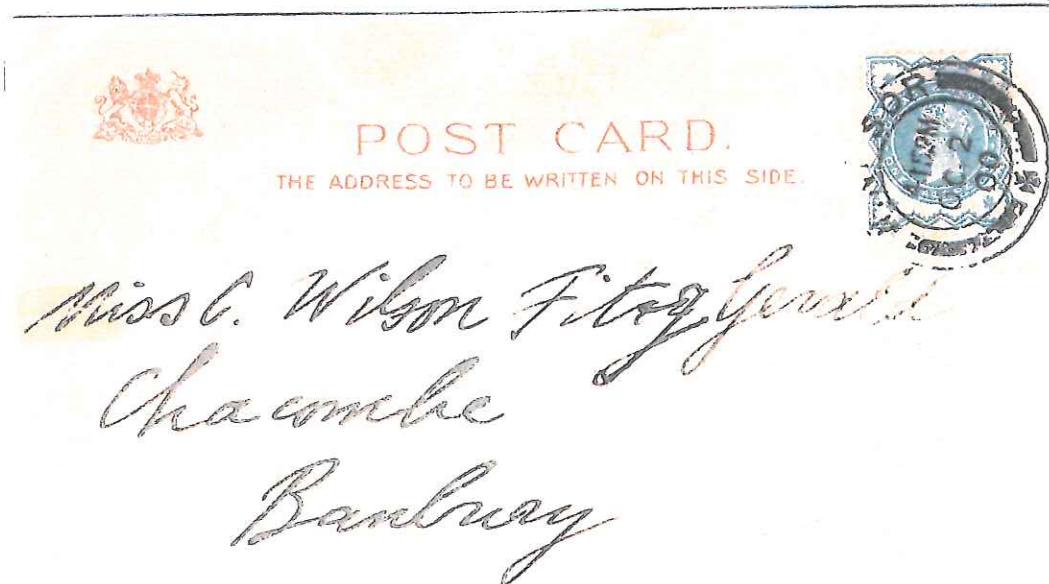 POST CARD.
THE ADDRESS TO BE WRITTEN ON THIS SIDE.
OC 2
00
Miss C. Wilson FitzGerald
Chacombe
Banbury